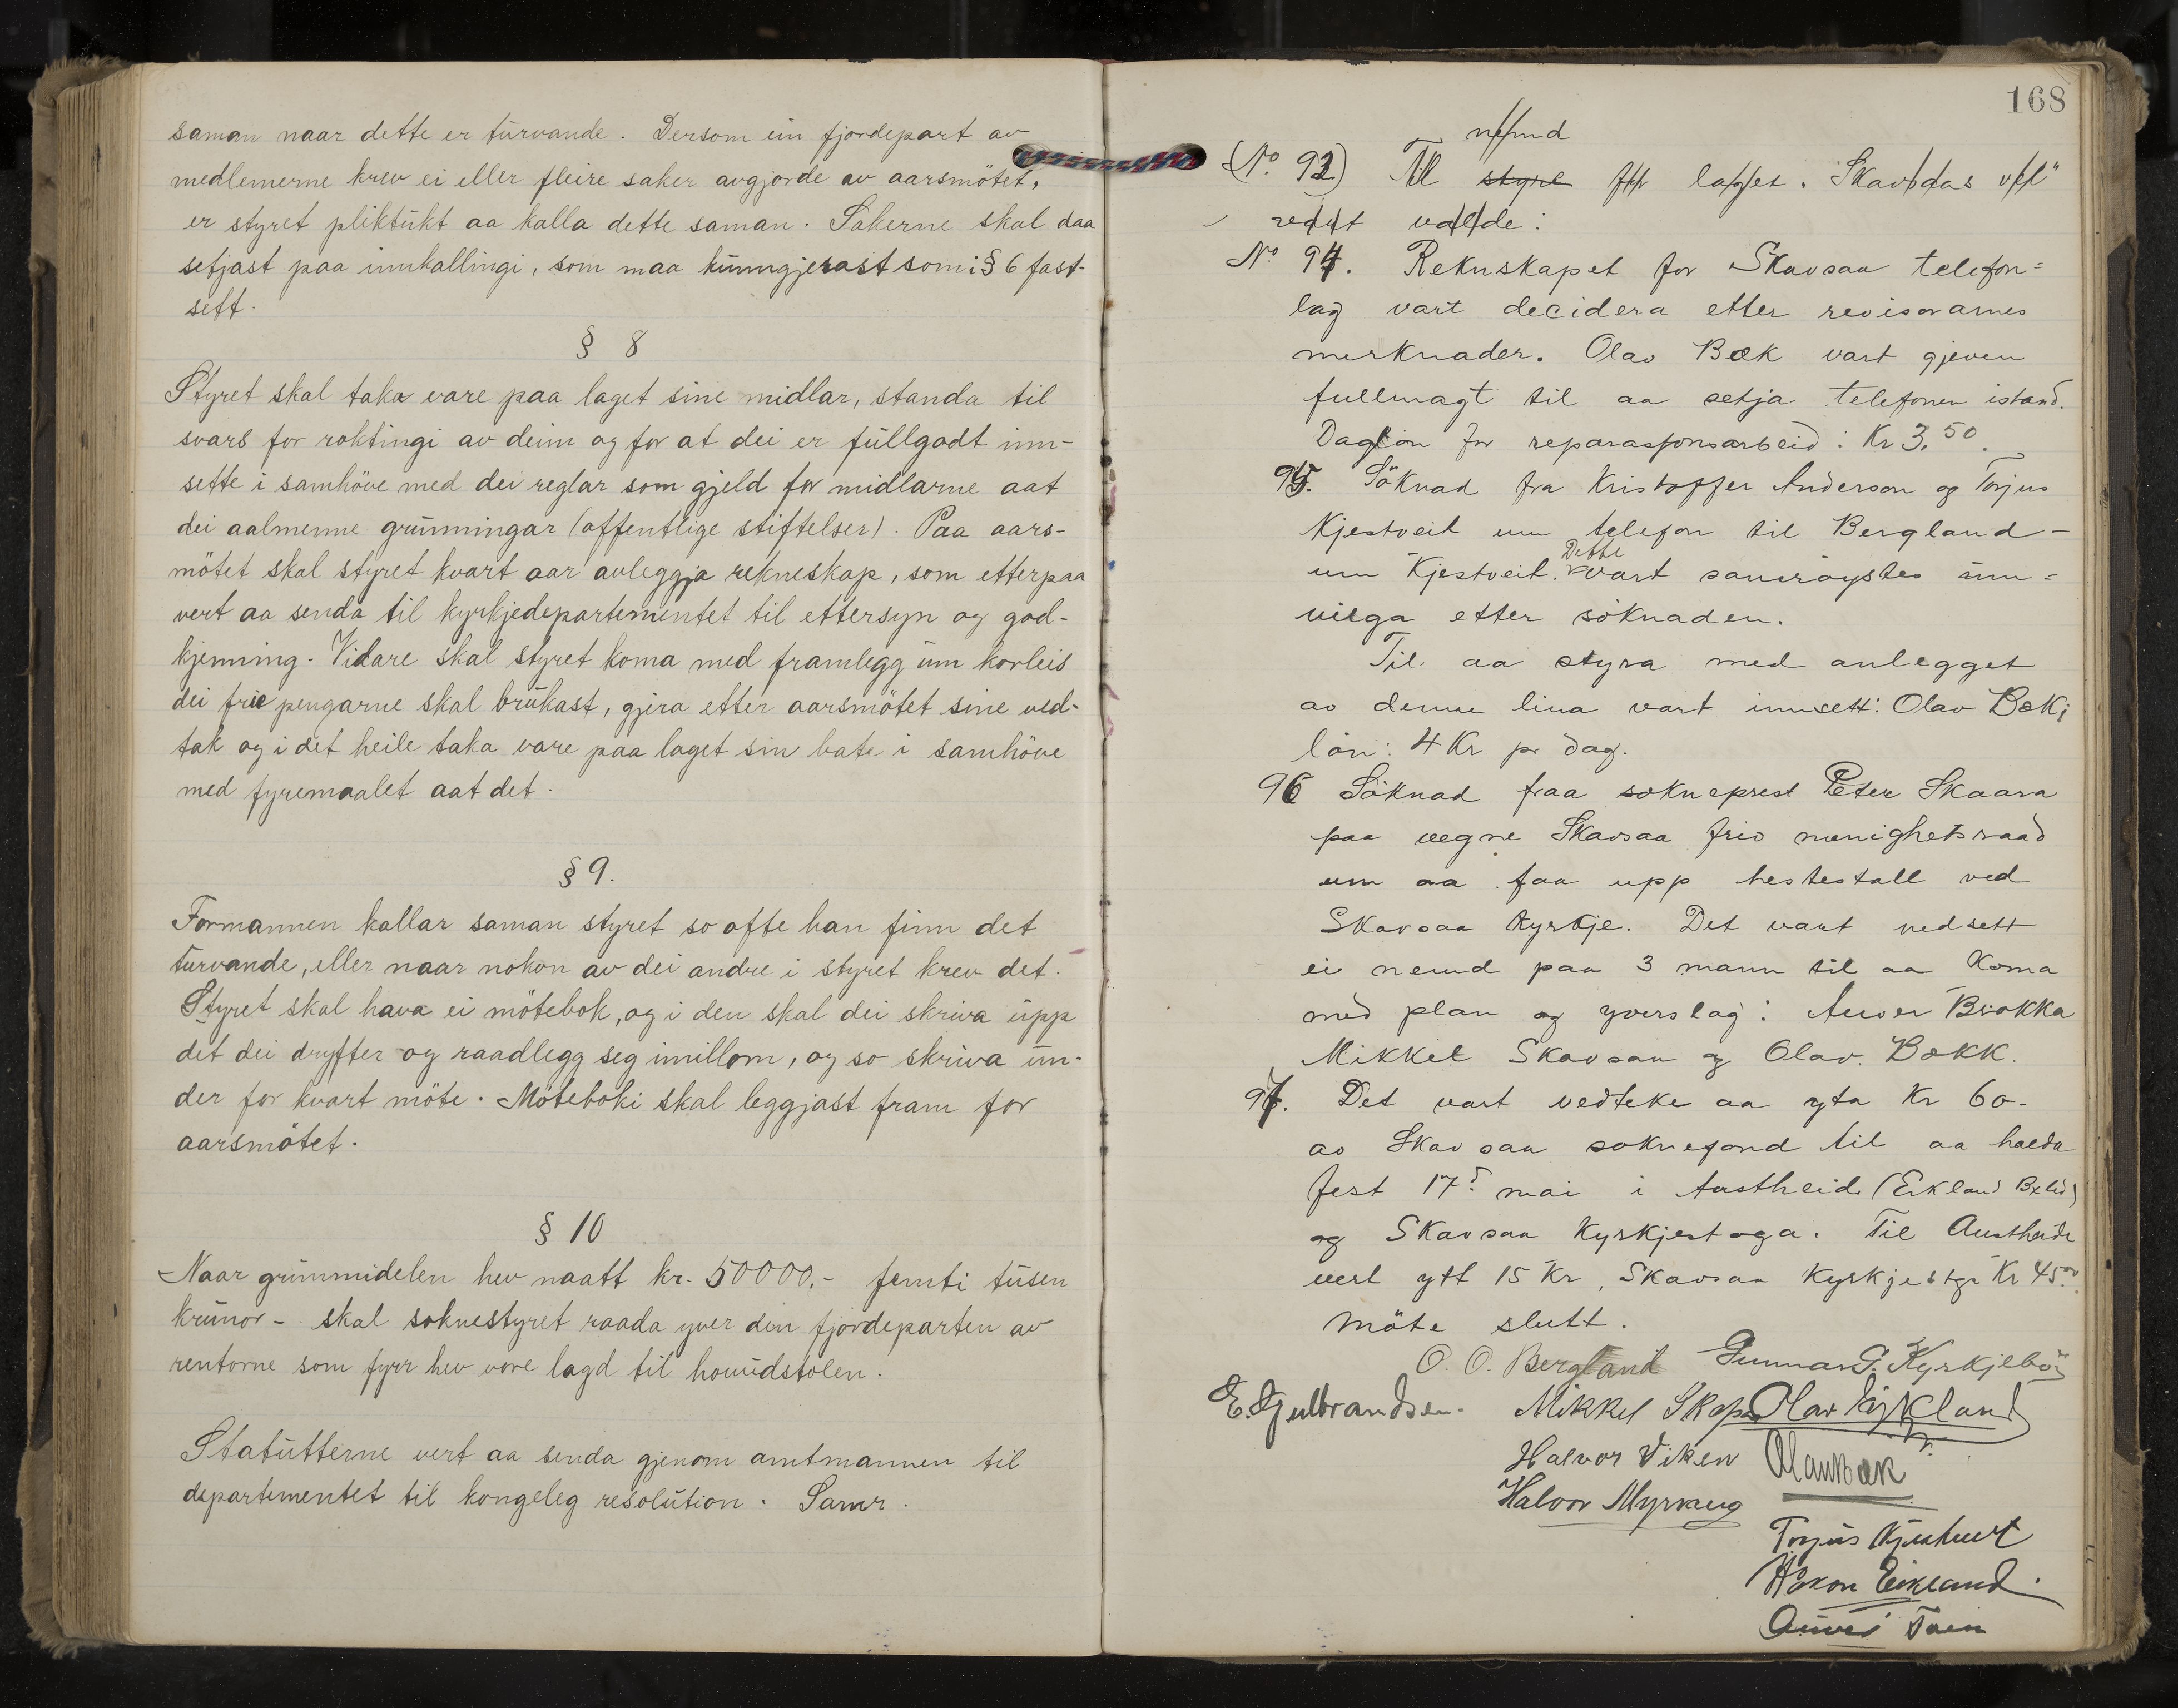 saman naar dette er turvande. Dersom ein fjordepart av
medlemerne krev ei eller fleire saker avgjorde av aarsmötet,
er styret pliktukt aa kalla dette saman. Sakerne skal daa
setjast paa innkallingi, som maa kunngjerast som i § 6 fast-
sett.
§ 8
Styret skal taka vare paa laget sine midlar, standa til
svars for röktingi av deim og for at dei er fullgodt inn-
sette i samhöve med dei reglar som gjeld for midlarne aat
dei aalmenne grunningar (offentlige stiftelser). Paa aars-
mötet skal styret kvart aar avleggja rekneskap, som etterpaa
vert aa senda til kyrkjedepartementet til ettersyn og god-
kjenning. Vidare skal styret koma med framlegg um korleis
dei frie pengarne skal brukast, gjera etter aarsmötet sine ved-
tak og i det heile taka vare paa laget sin bate i samhöve
med fyremaalet aat det.
§ 9.
Formannen kallar saman styret so ofte han finn det
turvande, eller naar nokon av dei andre i styret krev det.
Styret skal hava ei mötebok, og i den skal dei skriva upp
det dei dryfter og raadlegg seg imillom, og so skriva un-
der for kvart möte. Möteboki skal leggjast fram for
aarsmötet.
§ 10
Naar grunnmidelen hev naatt kr. 50000,- femti tusen
krunor - skal soknestyret raada yver den fjordeparten av
rentorne som fyrr hev vore lagd til hovudstolen.
Statutterne vert aa senda gjenom amtmannen til
departementet til kongeleg resolution. Samr.
168
nemnd
(No. 92) Til styre for laget. Skavsaas vel"
valde:
No 94. Reknskapet for Skavsaa telefon=
lag vart decidera etter revisorarnes
merknader. Olav Bæk vart gjeven
fullmagt til aa setja telefonen istand.
Daglön for reparasjonsarbeid: Kr 3.50.
95. Söknad fra Kristoffer Anderson og Torjus
Kjestveit um telefon til Bergland -
Dette
um Kjestveit. vart samröystes inn=
vilga etter söknaden.
Til aa styra med anlegget
av denne lina vart innsett: Olav Bæk;
lön: 4 Kr pr dag.
96 Söknad fraa sokneprest Peter Skaara
paa vegne Skavsaa menighetsraad
um aa faa upp hestestall ved
Skavsaa Kyrkje. Det vart nedsett
ei nemnd paa 3 mann til aa Koma
med plan og yverslag: Anver Brokka
Mikkel Skavsaa og Olav Bækk.
97. Det vart vedteke aa yta Kr 60-
av Skavsaa soknefond til aa halda
fest 17d mai i Austheide (Eikland
og Skavsaa Kyrkjestoga. Til Austheide
vert ytt 15 Kr, Skavsaa Kyrkjestga Kr 45.00
Möte slutt.
O. O. Bergland Gunnar G. Kyrkjebö
E. Gulbrandsen. Mikkel Olav Eikland
Halvor Viken Olav Bæk
Halvor Myrvang
Torjus Kjestveit
Håkon Eikland.
Anver Tveit